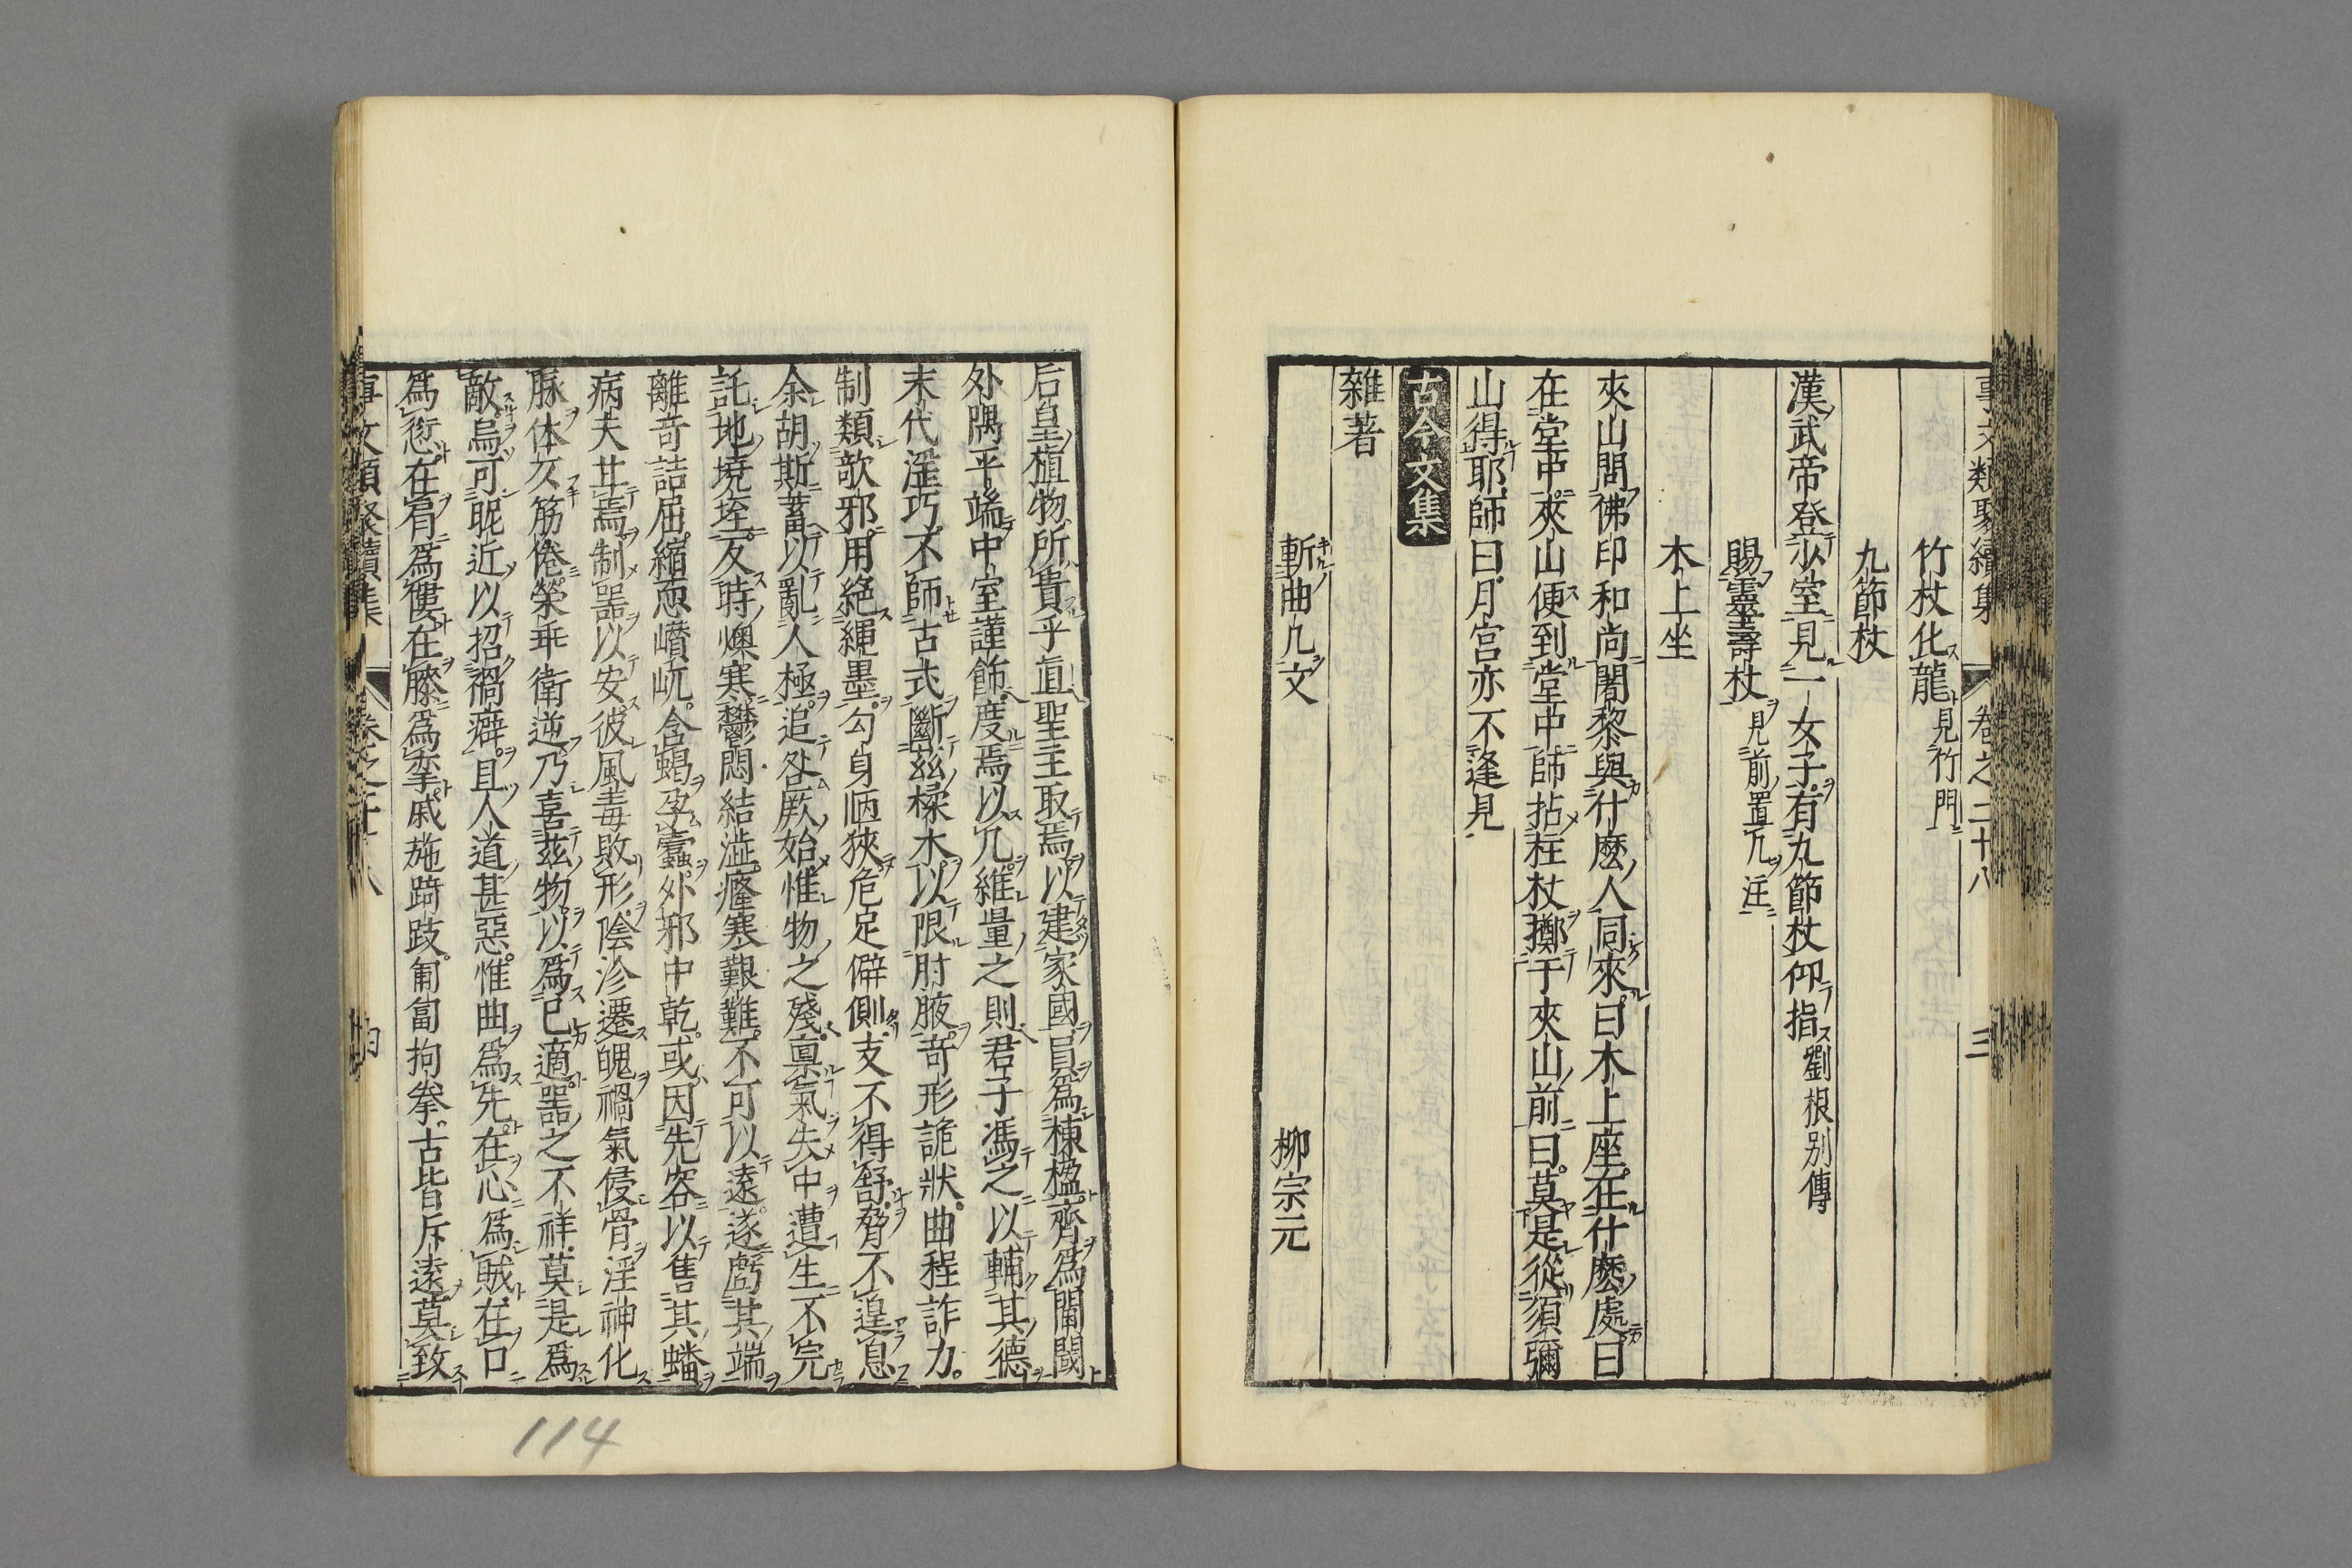 事文類聚續集 卷之二十八 三
竹杖化龍見竹門
九節杖
漢武帝登少室見一女子有九節杖仰指劉根別傳
賜靈壽杖見前置几注
木上坐
夾山問佛印和尚闍黎與什麽人同來曰木上座在什麽處曰
在堂中夾山便到堂中師拈柱杖擲于夾山前曰莫是從須彌
山得耶師曰月宮亦不逢見
古今文集
雜著
斬曲几文 柳宗元
后皇植物所貴乎直聖主取焉以建家國員爲棟楹齊爲闈閾
外隅平端中室謹飾度焉以几維量之則君子馮之以輔其德
末代淫巧不師古式斷茲楺木以限肘腋奇形詭狀曲程詐力
制類欹邪用絶繩墨勾身陋狹危足僻側支不得舒脅不遑息
余胡斯蓄以亂人極追咎厥始惟物之殘禀氣失中遭生不完
託地墝垤反時燠寒鬱悶結澁癃蹇艱難不可以遠遂虧其端
離奇詰屈縮恧巑岏含蝎孕蠹外邪中乾或因先容以售其蟠
病夫甘焉制器以安彼風毒敗形陰沴遷魄禍氣侵骨淫神化
脉体仄筋倦榮乖衛逆乃喜茲物以爲己適器之不祥莫是爲
敵烏可昵近以招禍癖且人道甚惡惟曲爲先在心爲賊在口
爲愆在肩爲僂在膝爲攣戚施踦跂匍匐拘拳古皆斥遠莫致
114